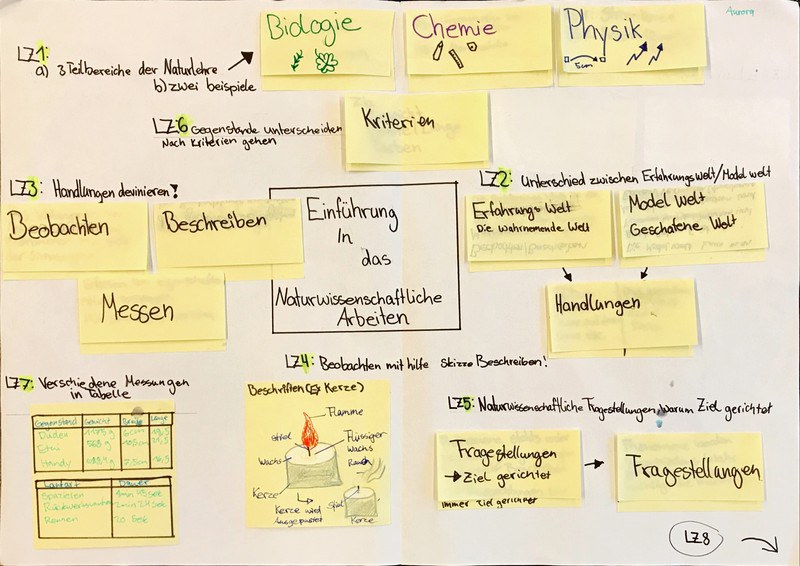 Aurora
LZ1:
a) 3 Teilbereiche der Naturlehre
b) zwei beispiele
Biologie
Chemie
Physik
5cm
LZ6 Gegenstände unterscheiden
Nach Kriterien gehen
Kriterien
LZ3: Handlungen devinieren!
Beobachten
Beschreiben
Messen
Einführung
In
das
Naturwissenschaftliche
Arbeiten
LZ2: Unterschied zwischen Erfahrungswelt/Model welt
Erfahrungs Welt
Die Wahrnemende Welt
Model Welt
Geschafene Welt
Handlungen
LZ7: Verschiedene Messungen
in Tabelle
Gegenstand Gewicht Breite Länge
Etui
Handy
Laufart Dauer
Spazieren
Rennen 20 Sek
LZ4: Beobachten mit hilfe Skizze Beschreiben!
Beschriften (Ex Kerze)
Flamme
Flüssiger
Wachs
Wachs
Rauch
Kerze
Kerze wird
Ausgepustet
Kerze
LZ5: Naturwissenschaftliche Fragestellungen, Warum Ziel gerichtet
Fragestellungen
→ Ziel gerichtet
immer Ziel gerichtet
→ Fragestellungen
LZ8